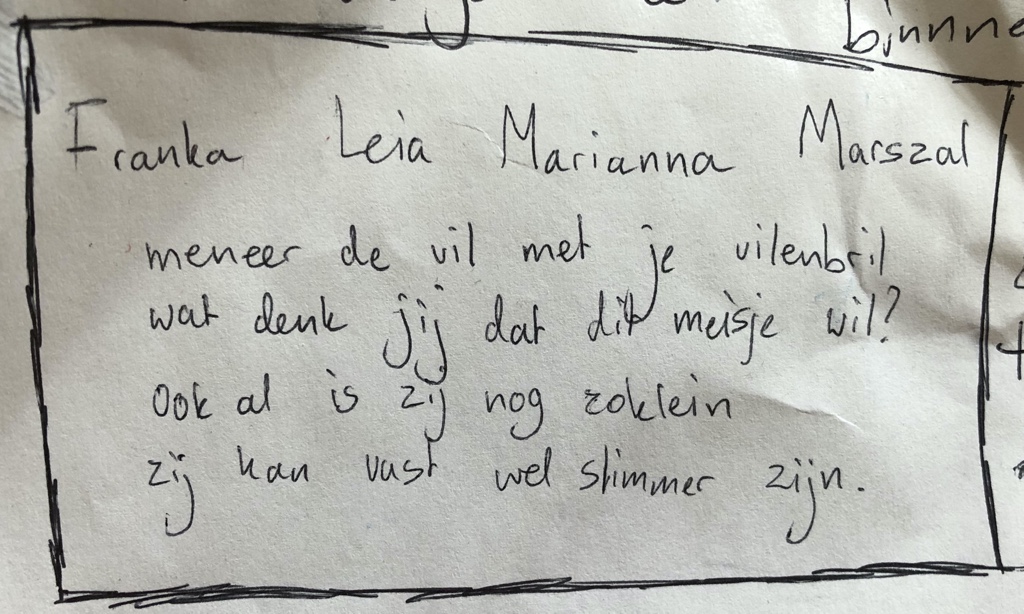 binnne
Franka Leia Marianna Marszal
meneer de uil met je uilenbril
wat denk jij dat dit meisje wil?
Ook al is zij nog zoklein
zij kan vast wel slimmer zijn.